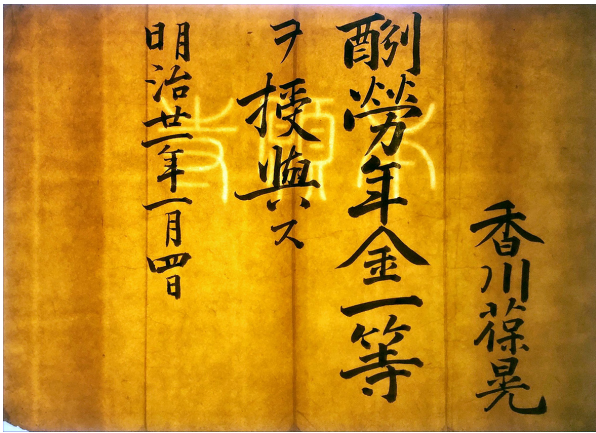 香川葆晃
酬勞年金一等
ヲ授與ス
明治廿一年一月四日
本願寺